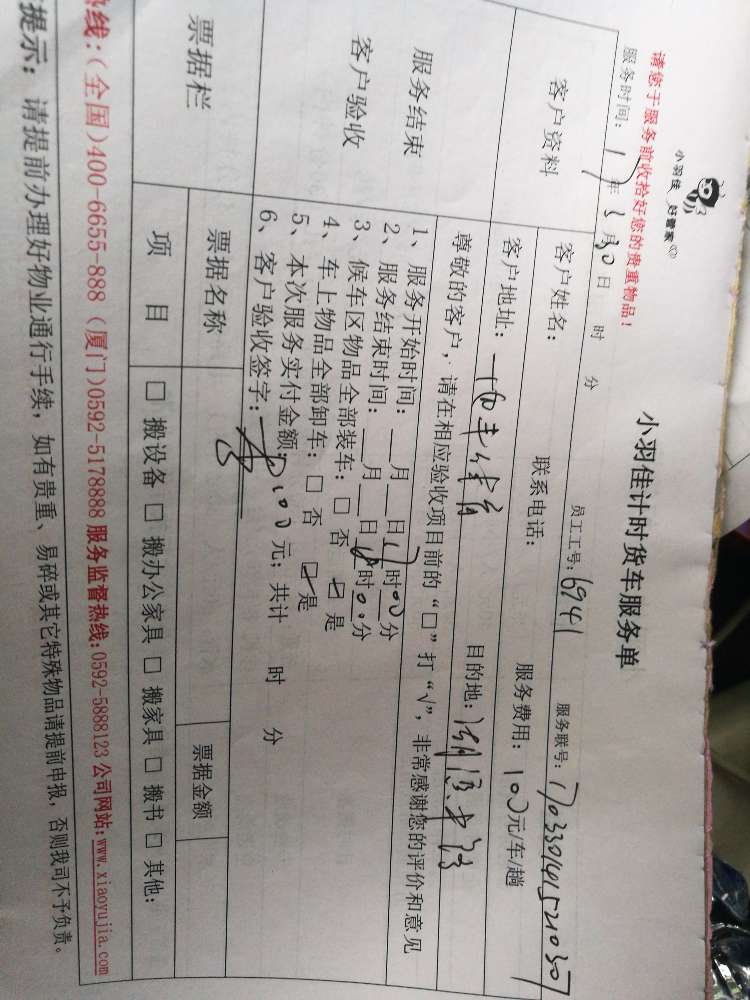 小羽佳 好管家
小羽佳计时货车服务单
请您于服务前收拾好您的贵重物品！
员工工号：6941 服务联号：1703301415521030
服务时间：17年3月30日 时 分
客户资料
客户姓名： 联系电话： 服务费用：100元/车/趟
客户地址： 目的地：
服务结束
客户验收
尊敬的客户，请在相应验收项目前的“□”打“√”，非常感谢您的评价和意见
1、服务开始时间：__月__日17时00分
2、服务结束时间：__月__日 时00分
3、候车区物品全部装车：□ 否 ☑ 是
4、车上物品全部卸车：□ 否 ☑ 是
5、本次服务实付金额：100元；共计 时 分
6、客户验收签字：
票据栏
票据名称 票据金额
项 目 □ 搬设备 □ 搬办公家具 □ 搬家具 □ 搬书 □ 其他：
热线：(全国)400-6655-888 (厦门)0592-5178888 服务监督热线：0592-5888123 公司网站：www.xiaoyujia.com
提示：请提前办理好物业通行手续，如有贵重、易碎或其它特殊物品请提前申报，否则我司不予负责。